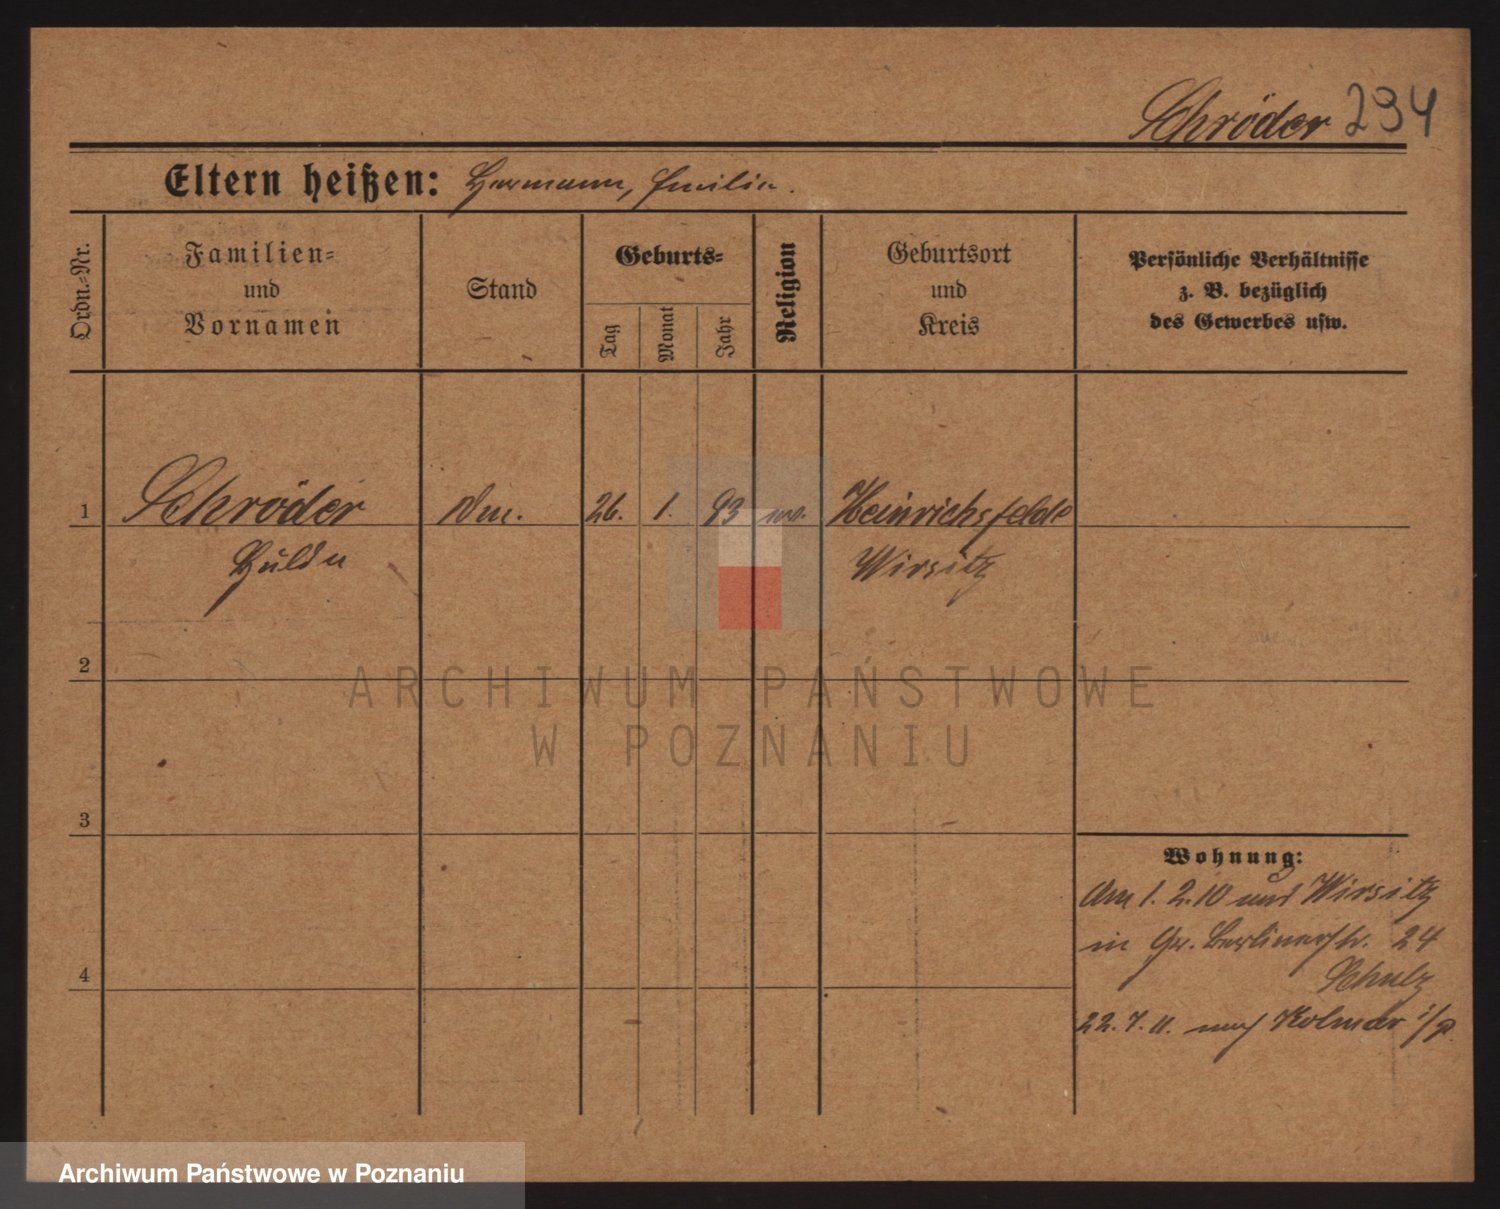 Schröder 294
Eltern heißen: Hermann, Emilie.
Ordn.-Nr.
Familien-
und
Vornamen
Stand
Geburts-
Tag
Monat
Jahr
Religion
Geburtsort
und
Kreis
Persönliche Verhältnisse
z. B. bezüglich
des Gewerbes usw.
1 Schröder 26. 1. 93 Heinrichsfelde
Hulda Wirsitz
2
ARCHIWUM PAŃSTWOWE
W POZNANIU
3
Wohnung:
Am 1. 2. 10 aus Wirsitz
in Gr. Berlinerstr. 24
Schulz
4
22. 7. 11. nach Kolmar i/P.
Archiwum Państwowe w Poznaniu